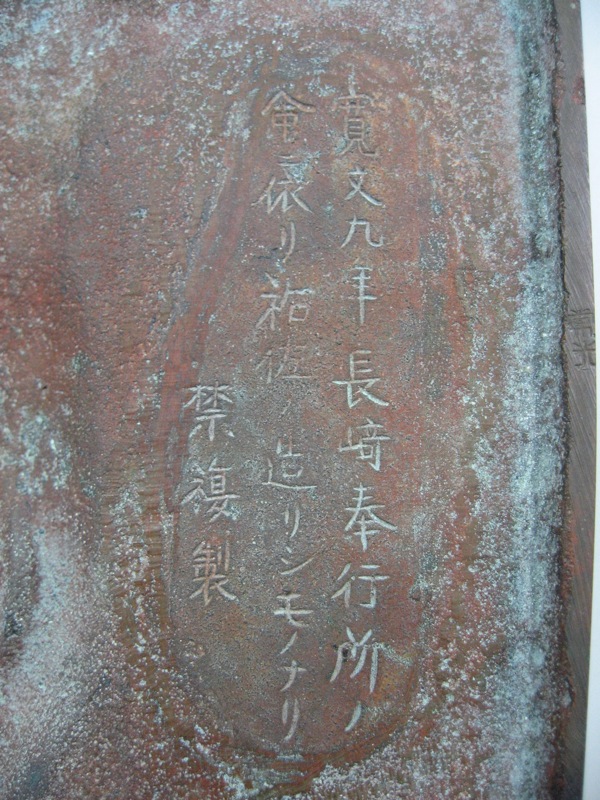 寛文九年長﨑奉行所ノ
命依リ祐佐ノ造リシモノナリ
禁複製